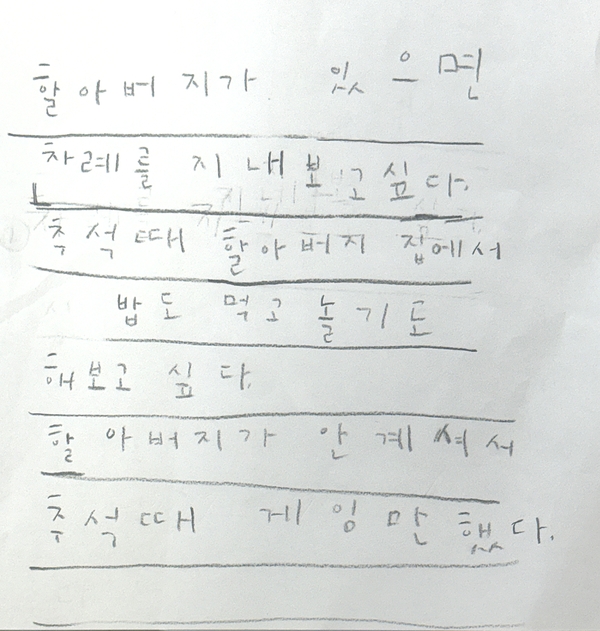 할아버지가 있으면
차례를 지내보고싶다.
추석때 할아버지 집에서
밥도 먹고 놀기도
해보고 싶다.
할아버지가 안계셔서
추석때 게임만 했다.